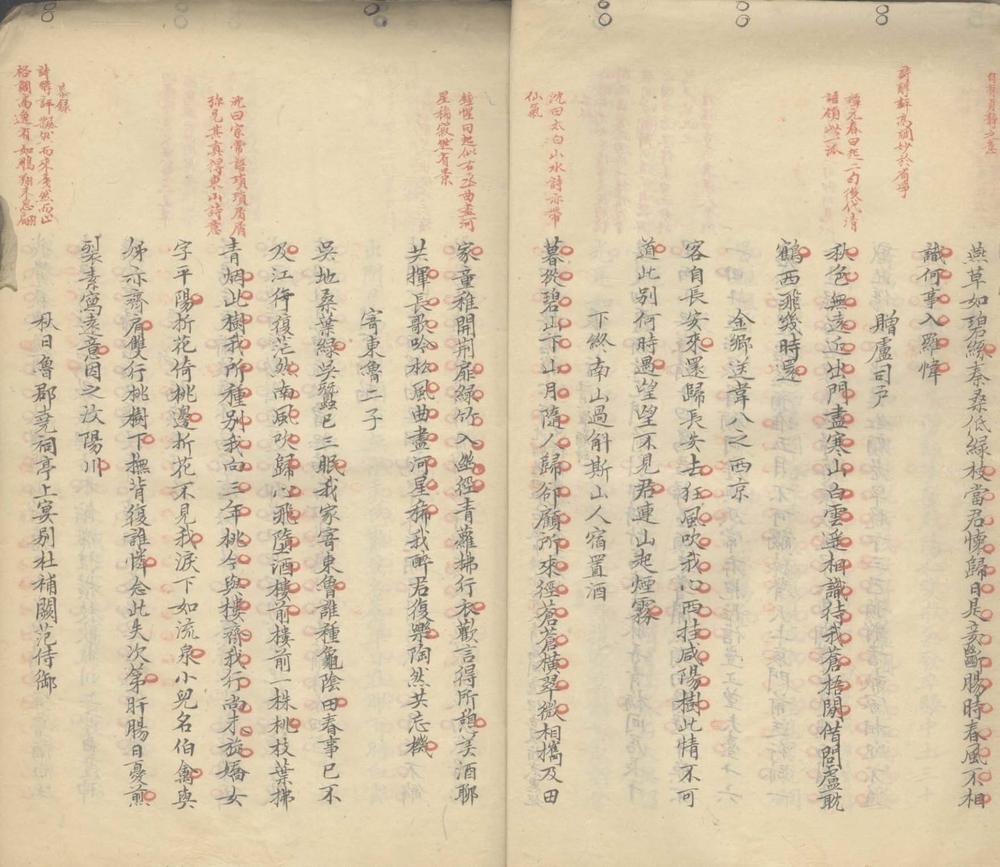 燕草如碧絲秦桑低綠枝當君懷歸日是妾斷腸時春風不相
識何事入羅幃
贈盧司戶
秋色無遠近出門盡寒山白雲遥相識待我蒼梧閒借問盧耽
鶴西飛幾時還
金鄉送韋八之西京
客自長安來還歸長安去狂風吹我心西挂咸陽樹此情不可
道此別何時遇望望不見君連山起煙霧
下終南山過斛斯山人宿置酒
暮從碧山下山月隨人歸卻顧所來徑蒼蒼橫翠微相攜及田
家童稚開荆扉綠竹入幽徑青蘿拂行衣歡言得所憩美酒聊
共揮長歌吟松風曲盡河星稀我醉君復樂陶然共忘機
寄東魯二子
吳地桑葉綠吳蠶已三眠我家寄東魯誰種龜陰田春事已不
及江行復茫然南風吹歸心飛墮酒樓前樓前一株桃枝葉拂
青烟此樹我所種別我向三年桃今與樓齊我行尚才旋嬌女
字平陽折花倚桃邊折花不見我淚下如流泉小兒名伯禽與
姊亦齊肩雙行桃樹下撫背復誰憐念此失次第肝腸日憂煎
裂素寫遠意因之汶陽川
秋日魯郡堯祠亭上宴別杜補闕范侍御
詩歸評高調妙於省爭
譚元春曰起二句後代清
語領此一派
沈曰太白山水詩亦帶
仙氣
鍾惺曰起似右丞曲盡河
星稀寂然有景
沈曰家常語瑣瑣屑屑
弥見其真得東山詩意
詩歸評飄然而來戛然而止
格調高逸有如鵬翔未息翩